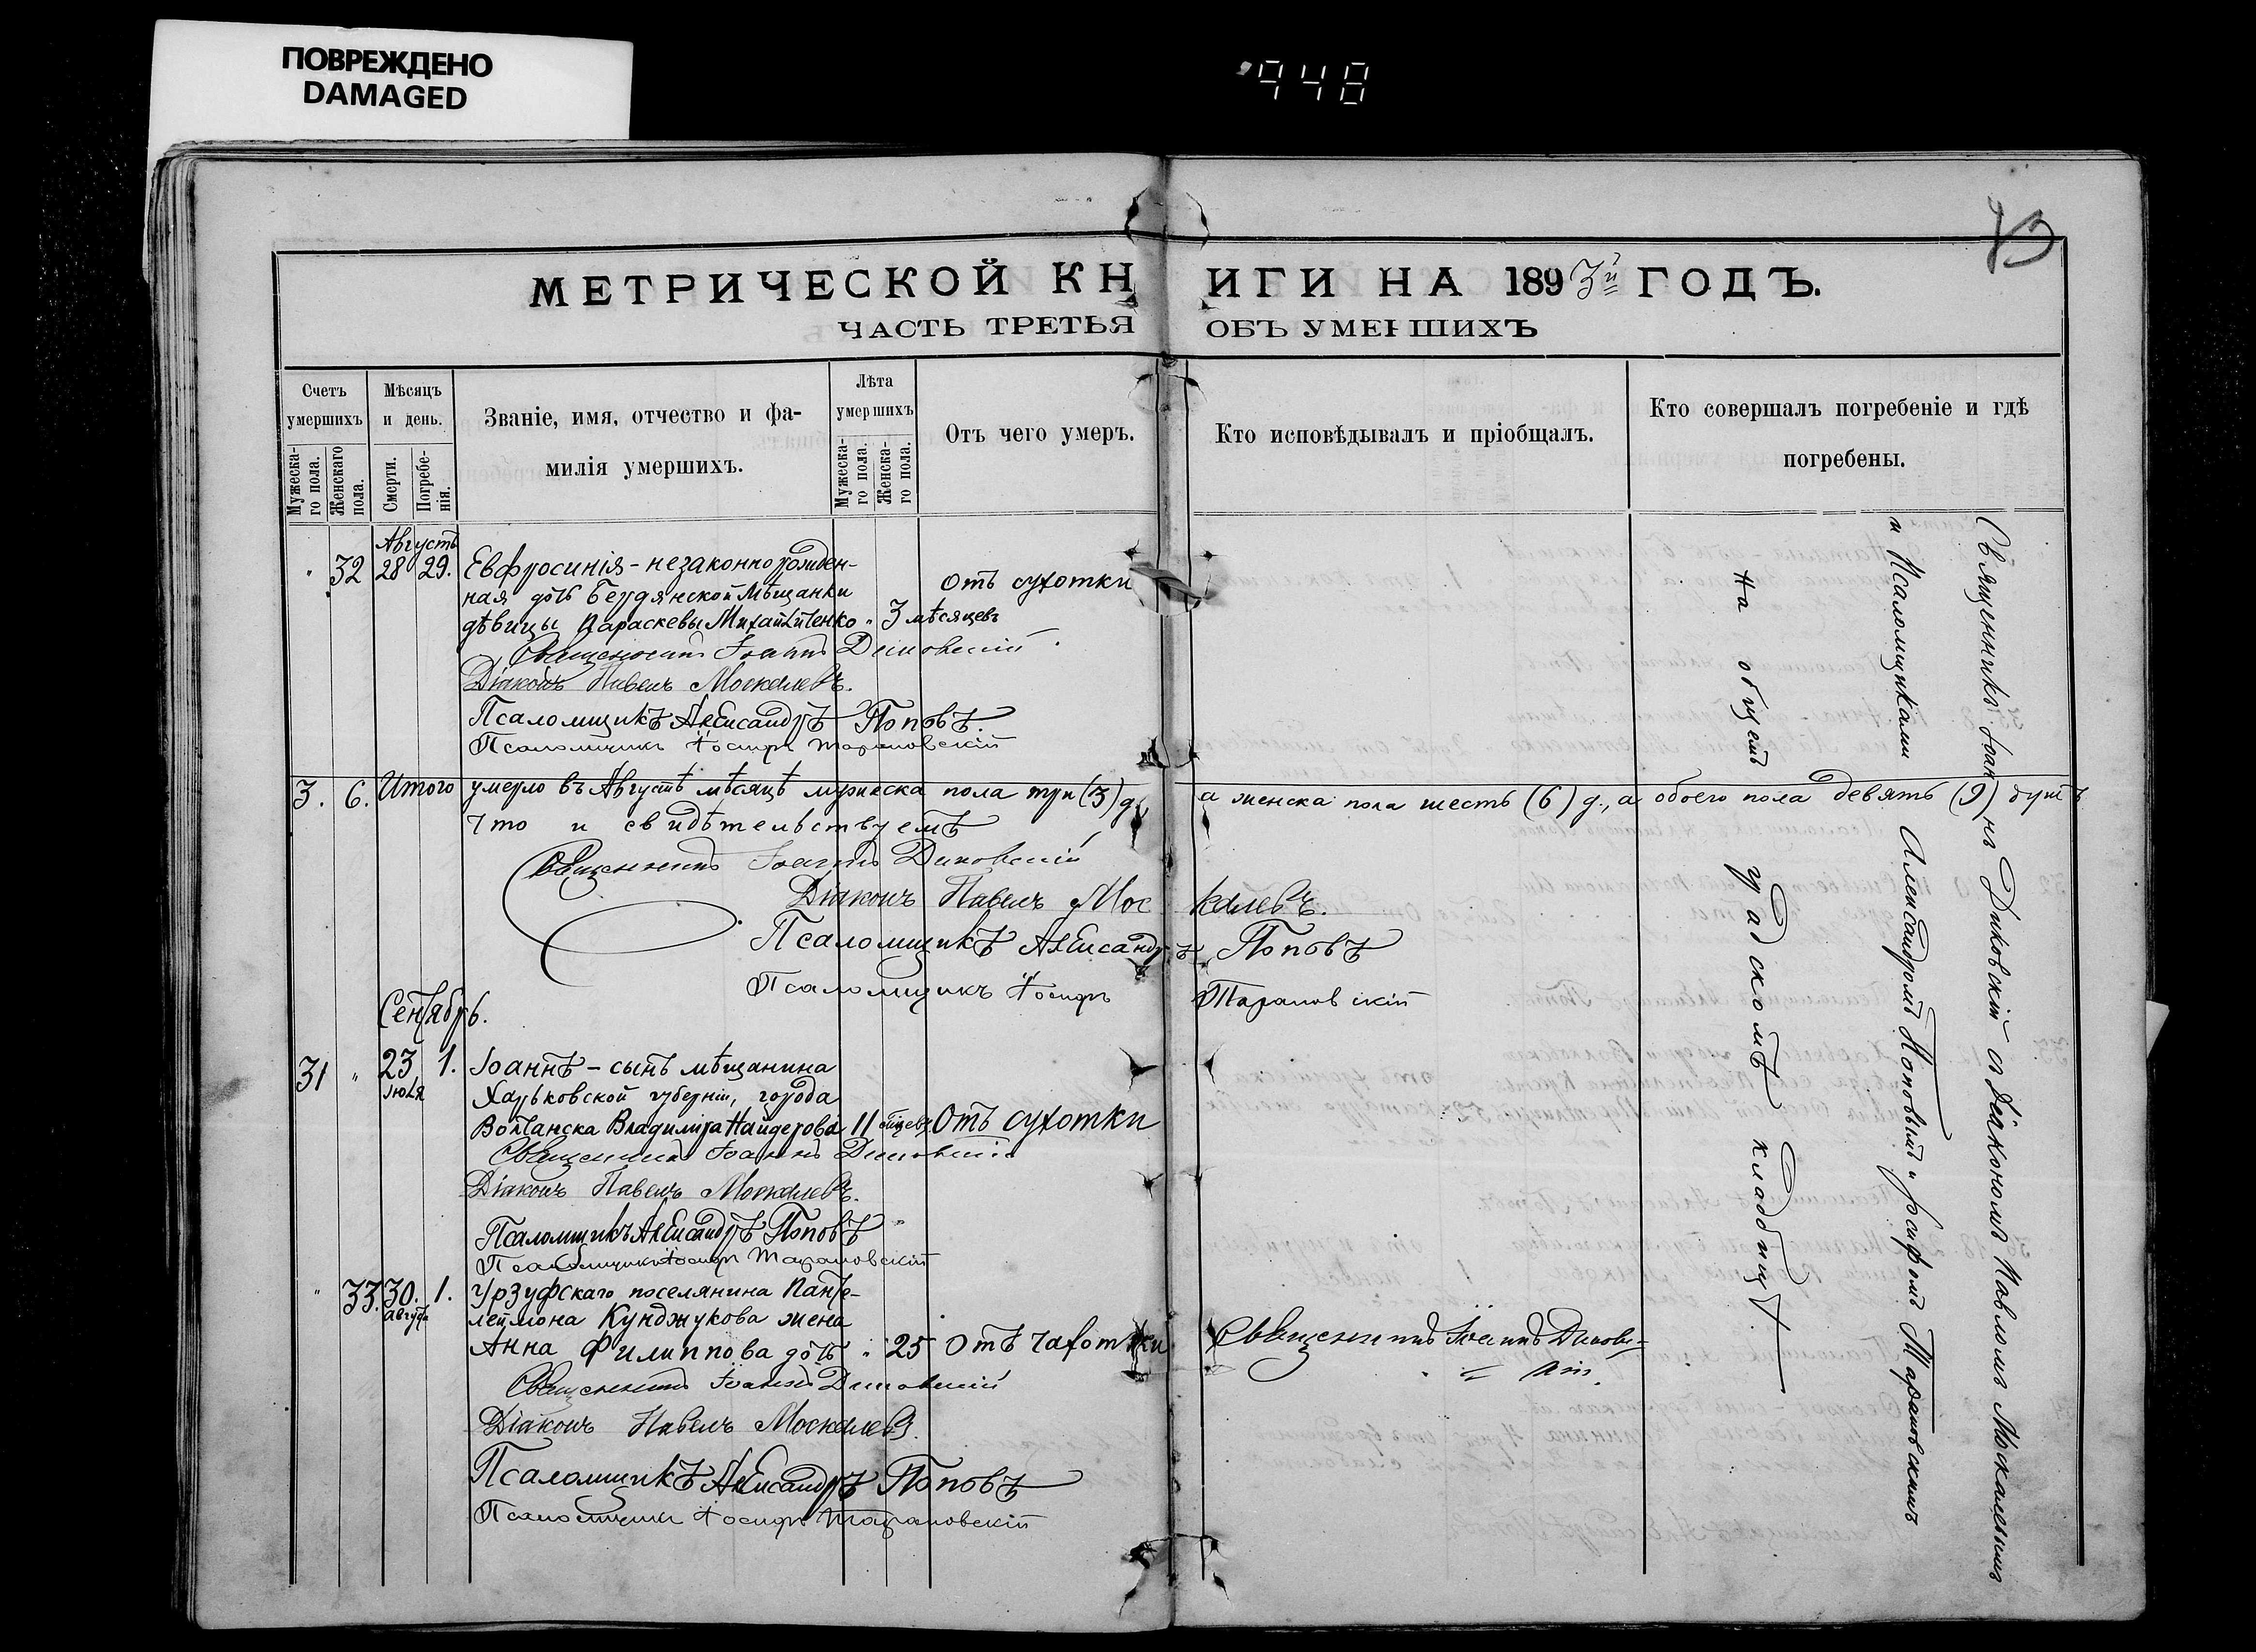 ПОВРЕЖДЕНО
DAMAGED
948
МЕТРИЧЕСКОЙ КНИГИ НА 1893й ГОДЪ.
ЧАСТЬ ТРЕТЬЯ ОБЪ УМЕРШИХЪ
Счетъ умершихъ
Мужеска-го пола.
Женскаго пола.
Мѣсяцъ и день.
Смерти.
Погребе-нія.
Званіе, имя, отчество и фа-
милія умершихъ.
Лѣта умершихъ
Мужеска-го пола.
Женска-го пола.
Отъ чего умеръ.
Кто исповѣдывалъ и пріобщалъ.
Кто совершалъ погребеніе и гдѣ
погребены.
Августъ
" 32 28 29. Евфросинія - незаконнорожден-
ная дочь Бердянской Мѣщанки Отъ сухотки
дѣвицы Параскевы " 3 мѣсяцевъ
Священникъ Іоаннъ Диковскій
Діаконъ Павелъ Москалевъ.
Псаломщикъ Александръ Поповъ.
Псаломщикъ Іосифъ Тарановскій
3. 6. Итого умерло въ Августѣ мѣсяцѣ мужеска пола три (3) д., а женска пола шесть (6) д., а обоего пола девять (9) душъ
что и свидѣтельствуемъ
Священникъ Іоаннъ Диковскій
Діаконъ Павелъ Москалевъ.
Псаломщикъ Александръ Поповъ
Псаломщикъ Іосифъ Тарановскій
Сентябрь.
31 " 23 1. Іоаннъ - сынъ мѣщанина
Іюля Харьковской губерніи, города
Волчанска Владимира Найдерова 11 Отъ сухотки
Священникъ Іоаннъ Диковскій
Діаконъ Павелъ Москалевъ.
Псаломщикъ Александръ Поповъ
Псаломщикъ Іосифъ Тарановскій
" 33. 30. 1. Урзуфскаго поселянина Панте-
августа леймона Кунджукова жена
Анна Филиппова дочь " 25 Отъ чахотки
Священникъ Іоаннъ Диковс-
кій.
Священникъ Іоаннъ Диковскій
Діаконъ Павелъ Москалевъ.
Псаломщикъ Александръ Поповъ
Псаломщикъ Іосифъ Тарановскій
Священникъ Іоаннъ Диковскій съ Діакономъ Павломъ Москалевымъ
и Псаломщиками Александромъ Поповымъ и Іосифомъ Тарановскимъ
На общемъ градскомъ кладбищѣ